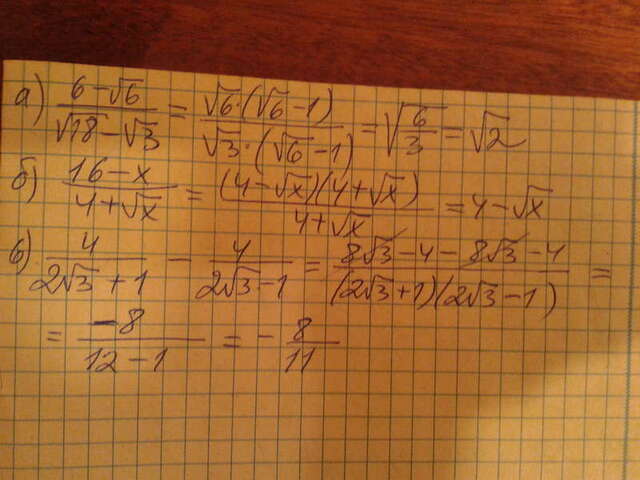 а) (6-√6)/(√18-√3) = (√6·(√6-1))/(√3·(√6-1)) = √(6/3) = √2
б) (16-x)/(4+√x) = ((4-√x)(4+√x))/(4+√x) = 4-√x
в) 4/(2√3+1) - 4/(2√3-1) = (8√3-4-8√3-4)/((2√3+1)(2√3-1)) =
= -8/(12-1) = -8/11